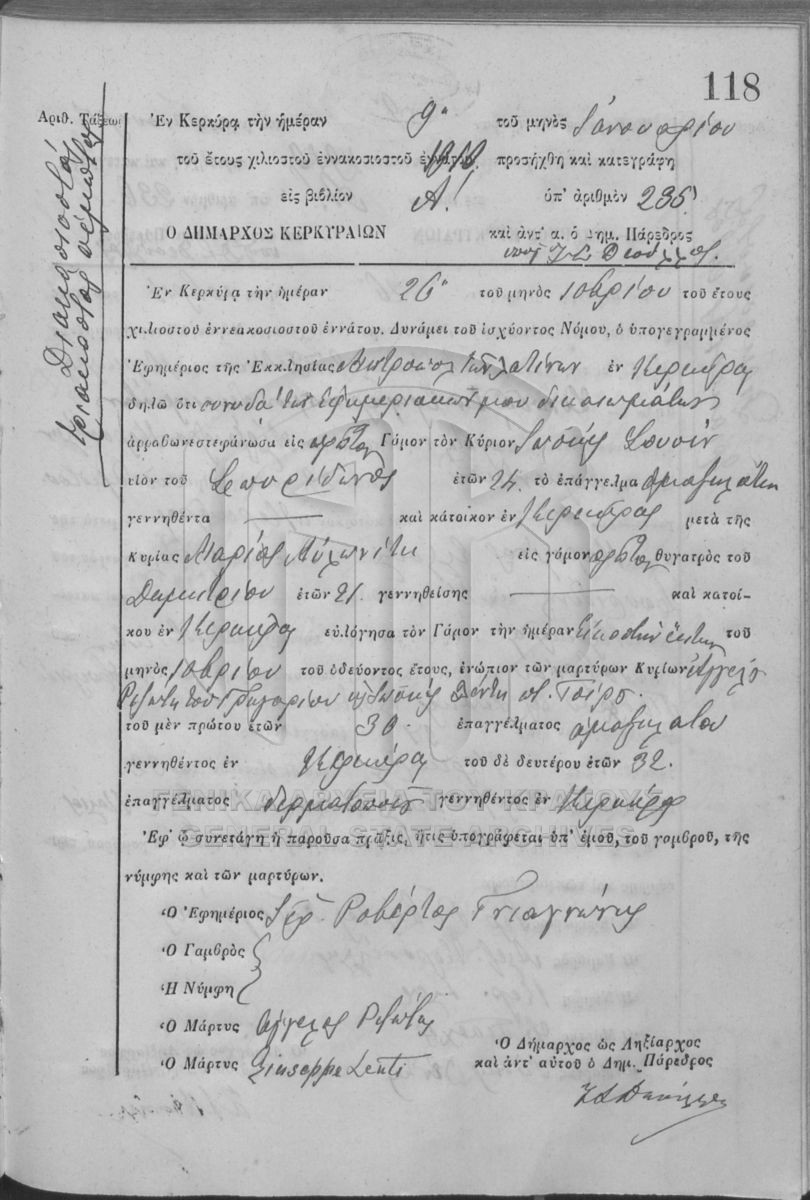 118
Αριθ. Τάξεως
Διακοσιοστός
τριακοστός πέμπτος
Ἐν Κερκύρᾳ τὴν ἡμέραν 9ην τοῦ μηνὸς Ιανουαρίου
τοῦ ἔτους χιλιοστοῦ ἐννακοσιοστοῦ 1910 προσήχθη καὶ κατεγράφη
εἰς βιβλίον Α! ὑπ' ἀριθμὸν 235
Ο ΔΗΜΑΡΧΟΣ ΚΕΡΚΥΡΑΙΩΝ καὶ ἀντ' α. ὁ Δημ. Πάρεδρος
Ἐν Κερκύρᾳ τὴν ἡμέραν 26ην τοῦ μηνὸς 10βρίου τοῦ ἔτους
χιλιοστοῦ ἐννεακοσιοστοῦ ἐννάτου. Δυνάμει τοῦ ἰσχύοντος Νόμου, ὁ ὑπογεγραμμένος
Ἐφημέριος τῆς Ἐκκλησίας Μητροπόλ. των Λατίνων ἐν Κερκύρᾳ
δηλῶ ὅτι συνῳδά των εφημεριακών μου δικαιωμάτων
ἀρραβωνεστεφάνωσα εἰς πρώτον Γάμον τὸν Κύριον Ιωσήφ Σουσίν
υἱὸν τοῦ Σπυρίδωνος ἐτῶν 24. τὸ ἐπάγγελμα αμαξηλάτην
γεννηθέντα — καὶ κάτοικον ἐν Κερκύρας μετὰ τῆς
Κυρίας Μαρίας Αυλωνίτη εἰς γάμον πρώτον θυγατρὸς τοῦ
Δημητρίου ἐτῶν 21. γεννηθείσης — καὶ κατοί-
κου ἐν Κερκύρα εὐλόγησα τὸν Γάμον τὴν ἡμέραν εικοστην έκτην τοῦ
μηνὸς 10βρίου τοῦ ὁδεύοντος ἔτους, ἐνώπιον τῶν μαρτύρων Κυρίων Αγγελο
Ριζώτη του Γρηγορίου κ Ιωσήφ Λέντη
τοῦ μὲν πρώτου ἐτῶν 30 ἐπαγγέλματος αμαξηλατου
γεννηθέντος ἐν Κερκύρα τοῦ δὲ δευτέρου ἐτῶν 32.
ἐπαγγέλματος δερματοποιού γεννηθέντος ἐν Κερκύρα
ΓΕΝΙΚΑ ΑΡΧΕΙΑ ΤΟΥ ΚΡΑΤΟΥΣ
GENERAL STATE ARCHIVES
Ἐφ' ᾧ συνετάγη ἡ παροῦσα πρᾶξις, ἥτις ὑπογράφεται ὑπ' ἐμοῦ, τοῦ γαμβροῦ, τῆς
νύμφης καὶ τῶν μαρτύρων.
Ὁ Ἐφημέριος Ιερ. Ροβέρτος
Ὁ Γαμβρὸς
Ἡ Νύμφη
Ὁ Μάρτυς Αγγελος Ριζώτης
Ὁ Μάρτυς Giuseppe Lenti
Ὁ Δήμαρχος ὡς Ληξίαρχος
καὶ ἀντ' αὐτοῦ ὁ Δημ. Πάρεδρος